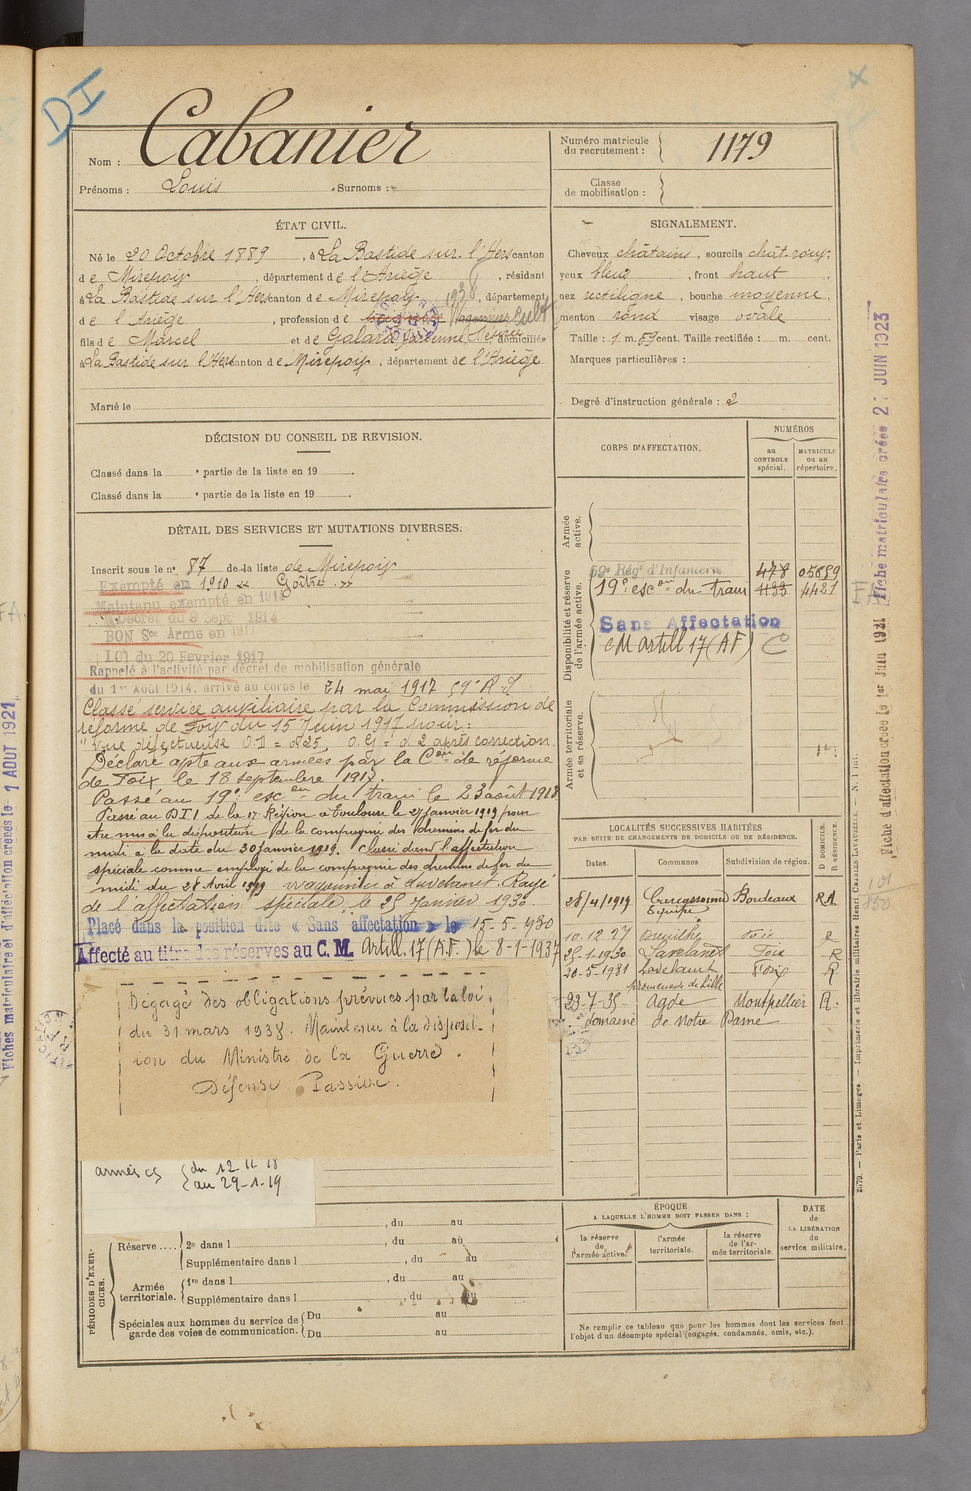 DI
Nom : Cabanier
Prénoms : Louis Surnoms :
Numéro matricule du recrutement : 1179
Classe de mobilisation :
ÉTAT CIVIL.
Né le 20 Octobre 1889, à La Bastide sur l'Hers canton
de Mirepoix, département de l'Ariège, résidant
à La Bastide sur l'Hers canton de Mirepoix, département
de l'Ariège, profession de
1938
fils de Marcel et de Galard domiciliés
à La Bastide sur l'Hers canton de Mirepoix, département de l'Ariège
Marié le
SIGNALEMENT.
Cheveux châtains, sourcils chât. roux;
yeux bleus, front haut,
nez rectiligne, bouche moyenne,
menton rond visage ovale
Taille : 1 m. 69 cent. Taille rectifiée : m. cent.
Marques particulières :
Degré d'instruction générale : 2
DÉCISION DU CONSEIL DE REVISION.
Classé dans la e partie de la liste en 19 .
Classé dans la e partie de la liste en 19 .
DÉTAIL DES SERVICES ET MUTATIONS DIVERSES.
Inscrit sous le no 87 de la liste de Mirepoix
Exempté en 1910 « Goître »
Maintenu exempté en 1914
Décret du 9 Sept 1914
BON Sce Armé en 1917
LOI du 20 Février 1917
Rappelé à l'activité par décret de mobilisation générale
du 1er Août 1914. arrivé au corps le 24 mai 1917 59e R.I
Classé service auxiliaire par la Commission de
réforme de Foix du 15 Juin 1917 pour :
"Vue défectueuse O.D = 0.25, O.G = 0.2 après correction.
Déclaré apte aux armées par la Con de réforme
de Foix le 18 septembre 1917.
Passé au 19e escon du train le 23 août 1918
Passé au D.T.I de la 17e Région à Toulouse le 27 janvier 1919 pour
être mis à la disposition de la compagnie des chemins de fer du
midi à la date du 30 janvier 1919. Classé dans l'affectation
spéciale comme employé de la compagnie des chemins de fer du
midi du 28 Avril 1919 wagonnier à Lavelanet. Rayé
de l'affectation spéciale le 25 Janvier 1930.
Placé dans la position dite « Sans affectation » le 15-5-1930
Affecté au titre des réserves au C. M. Artill. 17 (A.F.) le 8-1-1937
Dégagé des obligations prévues par la loi
du 31 mars 1938. Maintenu à la disposit-
ion du Ministre de la Guerre.
Défense Passive.
armées {du 12-11-18
{au 29-1-19
CORPS D'AFFECTATION.
NUMÉROS
au CONTROLE spécial.
MATRICULE ou au répertoire.
Armée active.
Disponibilité et réserve de l'armée active.
59e Régt d'Infanterie 478 05689
19e escon du train 1133 4481
Sans Affectation
CM Artill 17 (AF)
Armée territoriale et sa réserve.
LOCALITÉS SUCCESSIVES HABITÉES
PAR SUITE DE CHANGEMENTS DE DOMICILE OU DE RÉSIDENCE.
Dates. Communes Subdivision de région. D DOMICILE. R RÉSIDENCE.
28/4/1919 Carcassonne Bordeaux RA
Equipe
10.12.27 Foix R
25-1-1930 Lavelanet Foix R
20-5-1931 Lavelanet Foix R
23-7-35 Agde Montpellier R.
domaine de Notre Dame
PÉRIODES D'EXERCICES.
, du au
Réserve.... 2e dans l , du au
Supplémentaire dans l , du au
Armée territoriale. 1re dans l , du au
Supplémentaire dans l , du au
Spéciales aux hommes du service de garde des voies de communication. Du au
Du au
ÉPOQUE
A LAQUELLE L'HOMME DOIT PASSER DANS :
la réserve de l'armée active.
l'armée territoriale.
la réserve de l'armée territoriale.
DATE
de
LA LIBÉRATION
du
service militaire.
Ne remplir ce tableau que pour les hommes dont les services font
l'objet d'un décompte spécial (engagés, condamnés, omis, etc.).
2079. — Paris et Limoges. — Imprimerie et librairie militaires Henri CHARLES-LAVAUZELLE.
Fiche d'affectation créée le 1er Juin 1921
Fiche matriculaire créée 2 JUIN 1923
Fiches matriculaire et d'affectation créées le 1 AOUT 1921